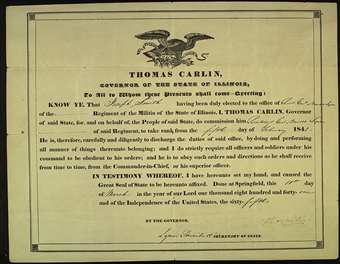 THOMAS CARLIN,
GOVERNOR OF THE STATE OF ILLINOIS,
To All to Whom these Presents shall come—Greeting:
KNOW YE, That Joseph Smith having been duly elected to the office of Lieut. Genl.
of the Regiment of the Militia of the State of Illinois, I, THOMAS CARLIN, Governor
of said State, for and on behalf of, the People of said State, do commission him Lieutenant Genl.
of said Regiment, to take rank from the fifth day of February 1841.
He is, therefore, carefully and diligently to discharge the duties of said office, by doing and performing
all manner of things thereunto belonging; and I do strictly require all officers and soldiers under his
command to be obedient to his orders; and he is to obey such orders and directions as he shall receive
from time to time, from the Commander-in-Chief, or his superior officer.
IN TESTIMONY WHEREOF, I have hereunto set my hand, and caused the
Great Seal of State to be hereunto affixed. Done at Springfield, this 10th day
of March in the year of our Lord one thousand eight hundred and forty-one
and of the Independence of the United States, the sixty-fifth
BY THE GOVERNOR.
SECRETARY OF STATE.